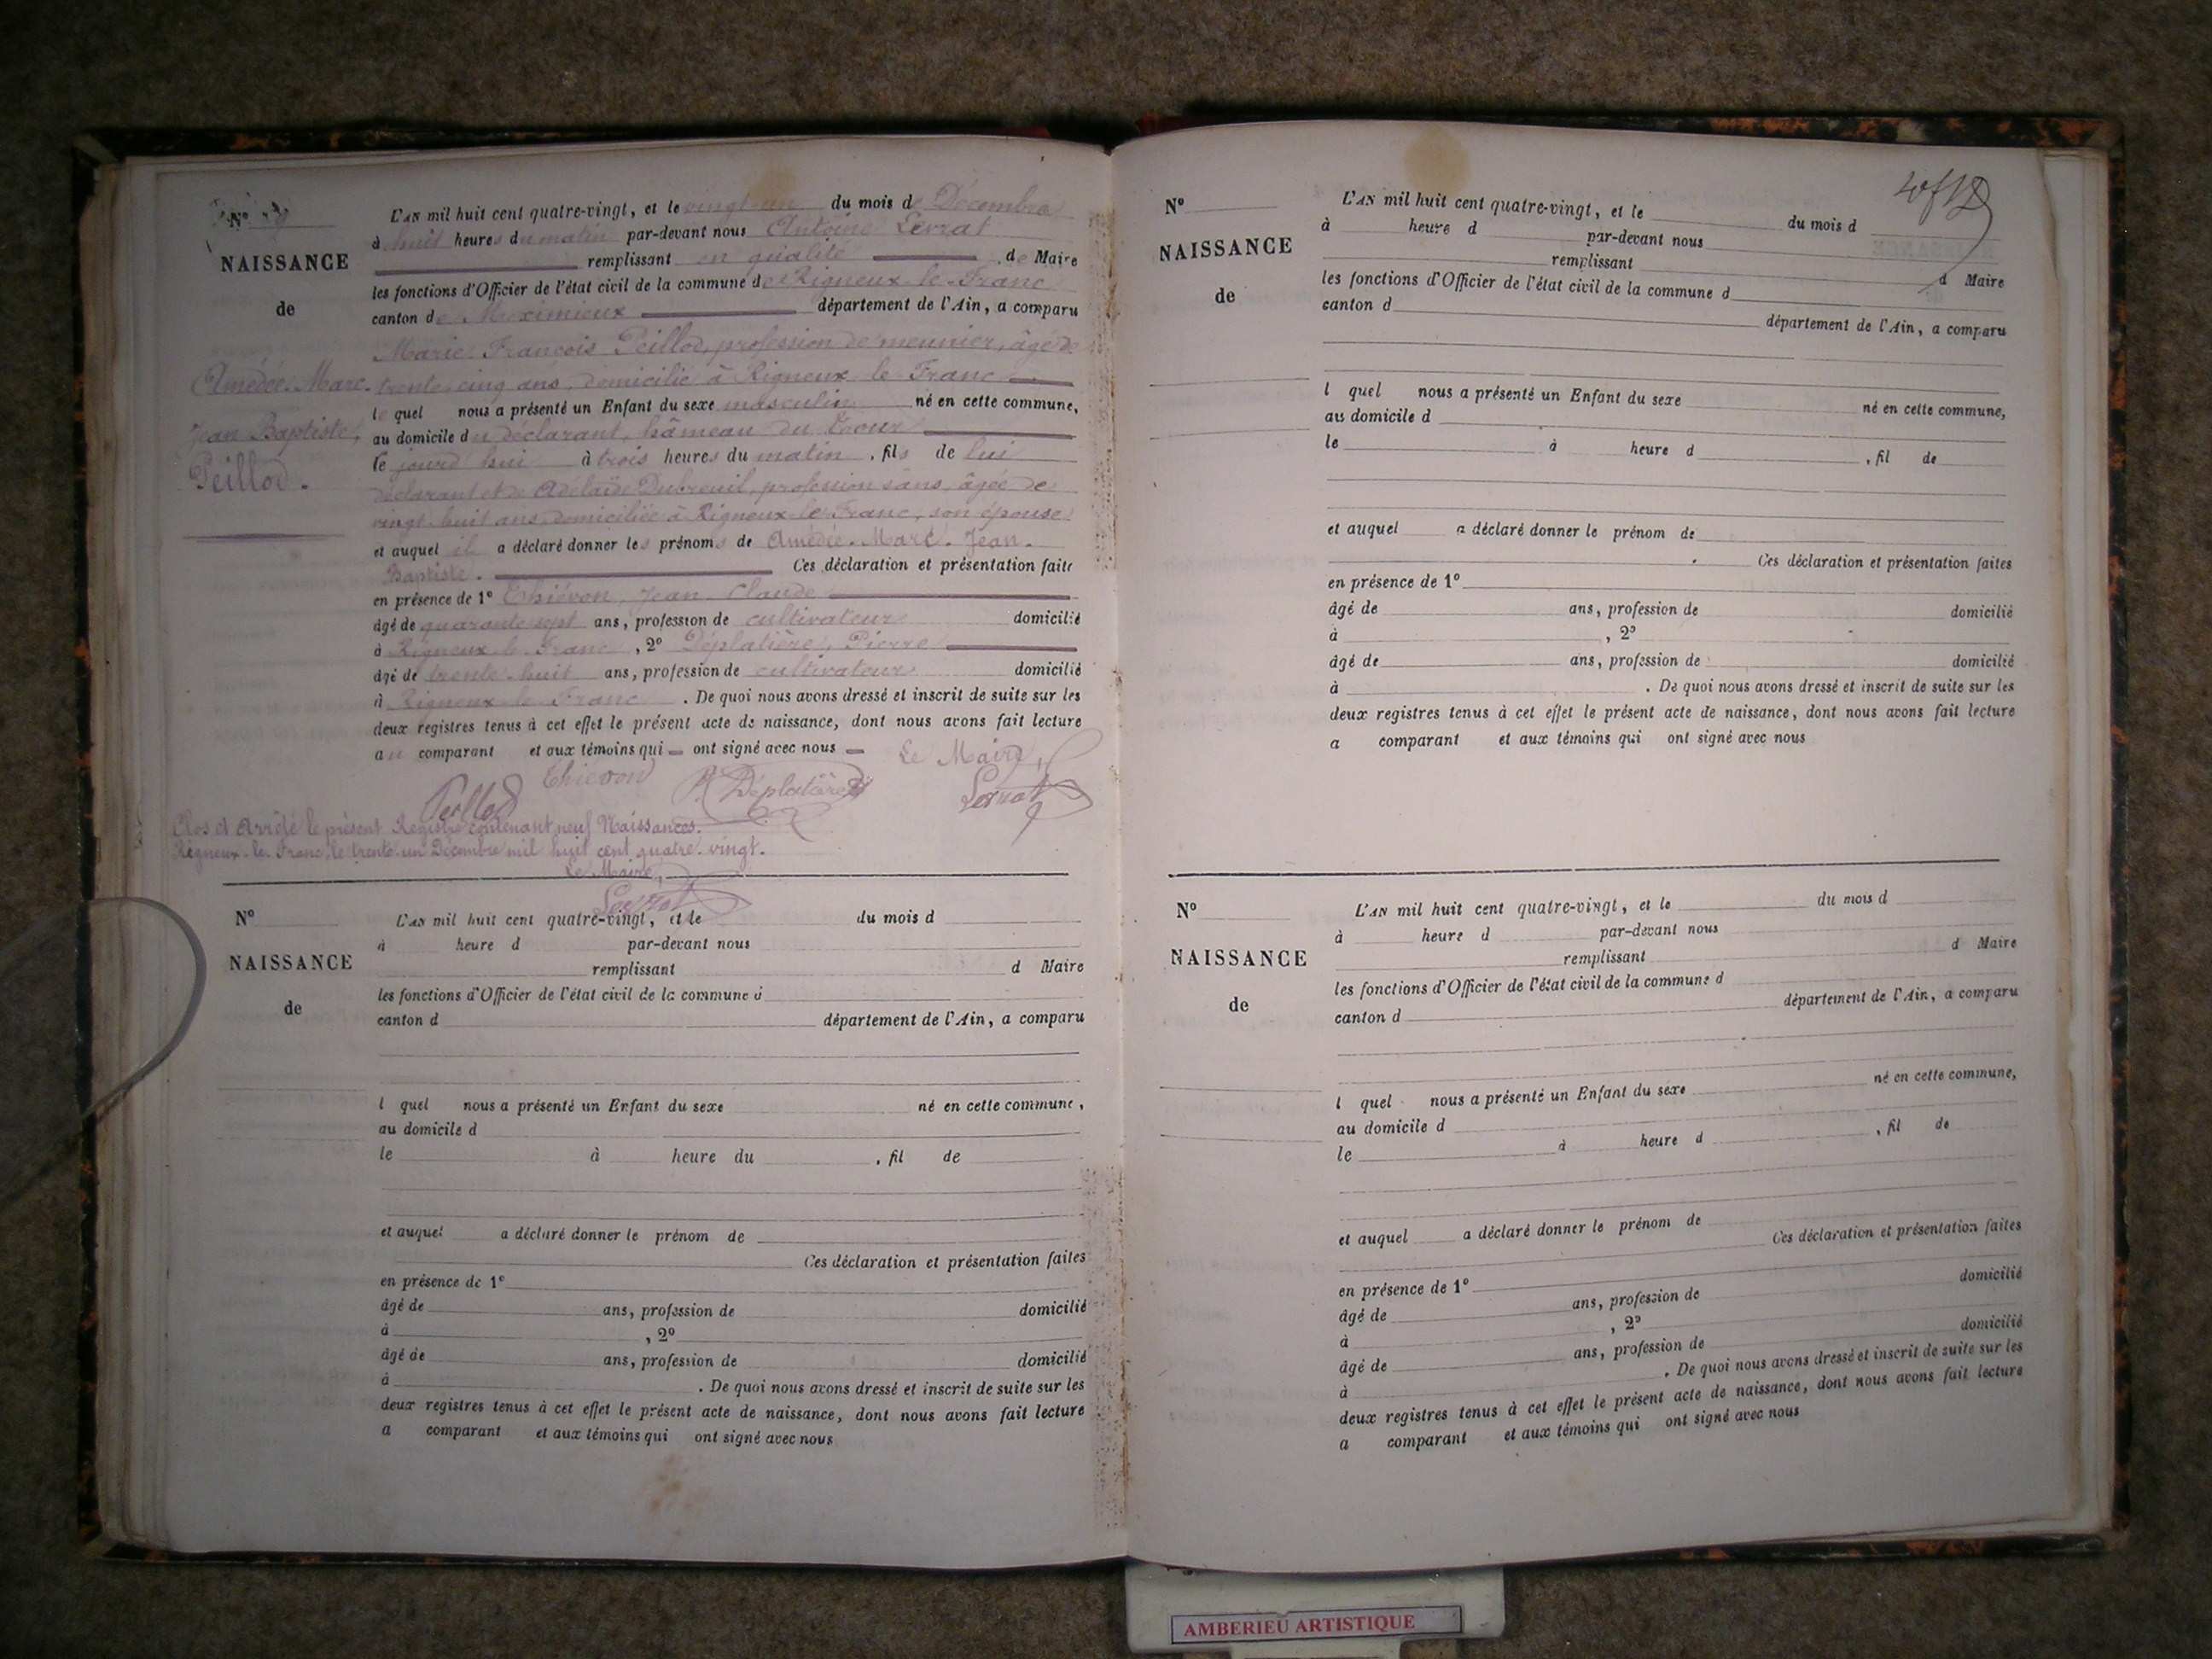 Nº 9
NAISSANCE
de
Amédée. Marc.
Jean Baptiste,
Peillod.
L'AN mil huit cent quatre-vingt, et le vingt-un du mois de Décembre
à huit heures du matin par-devant nous Antoine Levrat
remplissant en qualité de Maire
les fonctions d'Officier de l'état civil de la commune de Rigneux-le-Franc
canton de Meximieux département de l'Ain, a comparu
Marie François Peillod, profession de meunier, âgé de
trente-cinq ans, domicilié à Rigneux le Franc
lequel nous a présenté un Enfant du sexe masculin né en cette commune,
au domicile du déclarant, hâmeau du
le jourd'hui à trois heures du matin, fils de lui
déclarant et de Adélaïde Dubreuil, profession sans, âgée de
vingt-huit ans, domiciliée à Rigneux-le-Franc, son épouse
et auquel il a déclaré donner les prénoms de Amédée. Marc. Jean.
Baptiste. Ces déclaration et présentation faites
en présence de 1º Thiévon, Jean Claude
âgé de quarante sept ans, profession de cultivateur domicilié
à Rigneux le Franc, 2º Déplatière, Pierre
âgé de trente-huit ans, profession de cultivateur domicilié
à Rigneux le Franc. De quoi nous avons dressé et inscrit de suite sur les
deux registres tenus à cet effet le présent acte de naissance, dont nous avons fait lecture
au comparant et aux témoins qui ont signé avec nous
Le Maire,
Peillod Thievon P Déplatière Levrat
Clos et Arrêté le présent Registre contenant neuf Naissances.
Rigneux-le-Franc, le trente-un Décembre mil huit cent quatre-vingt.
Le Maire,
Levrat
Nº
NAISSANCE
de
L'AN mil huit cent quatre-vingt, et le du mois d
à heure d par-devant nous
remplissant d Maire
les fonctions d'Officier de l'état civil de la commune d
canton d département de l'Ain, a comparu
l quel nous a présenté un Enfant du sexe né en cette commune,
au domicile d
le à heure du , fil de
et auquel a déclaré donner le prénom de
Ces déclaration et présentation faites
en présence de 1º
âgé de ans, profession de domicilié
à , 2º
âgé de ans, profession de domicilié
à . De quoi nous avons dressé et inscrit de suite sur les
deux registres tenus à cet effet le présent acte de naissance, dont nous avons fait lecture
a comparant et aux témoins qui ont signé avec nous
Nº
NAISSANCE
de
L'AN mil huit cent quatre-vingt, et le du mois d
à heure d par-devant nous
remplissant d Maire
les fonctions d'Officier de l'état civil de la commune d
canton d département de l'Ain, a comparu
l quel nous a présenté un Enfant du sexe né en cette commune,
au domicile d
le à heure d , fil de
et auquel a déclaré donner le prénom de
Ces déclaration et présentation faites
en présence de 1º
âgé de ans, profession de domicilié
à , 2º
âgé de ans, profession de domicilié
à . De quoi nous avons dressé et inscrit de suite sur les
deux registres tenus à cet effet le présent acte de naissance, dont nous avons fait lecture
a comparant et aux témoins qui ont signé avec nous
Nº
NAISSANCE
de
L'AN mil huit cent quatre-vingt, et le du mois d
à heure d par-devant nous
remplissant d Maire
les fonctions d'Officier de l'état civil de la commune d
canton d département de l'Ain, a comparu
l quel nous a présenté un Enfant du sexe né en cette commune,
au domicile d
le à heure d , fil de
et auquel a déclaré donner le prénom de
Ces déclaration et présentation faites
en présence de 1º
âgé de ans, profession de domicilié
à , 2º
âgé de ans, profession de domicilié
à . De quoi nous avons dressé et inscrit de suite sur les
deux registres tenus à cet effet le présent acte de naissance, dont nous avons fait lecture
a comparant et aux témoins qui ont signé avec nous
AMBERIEU ARTISTIQUE